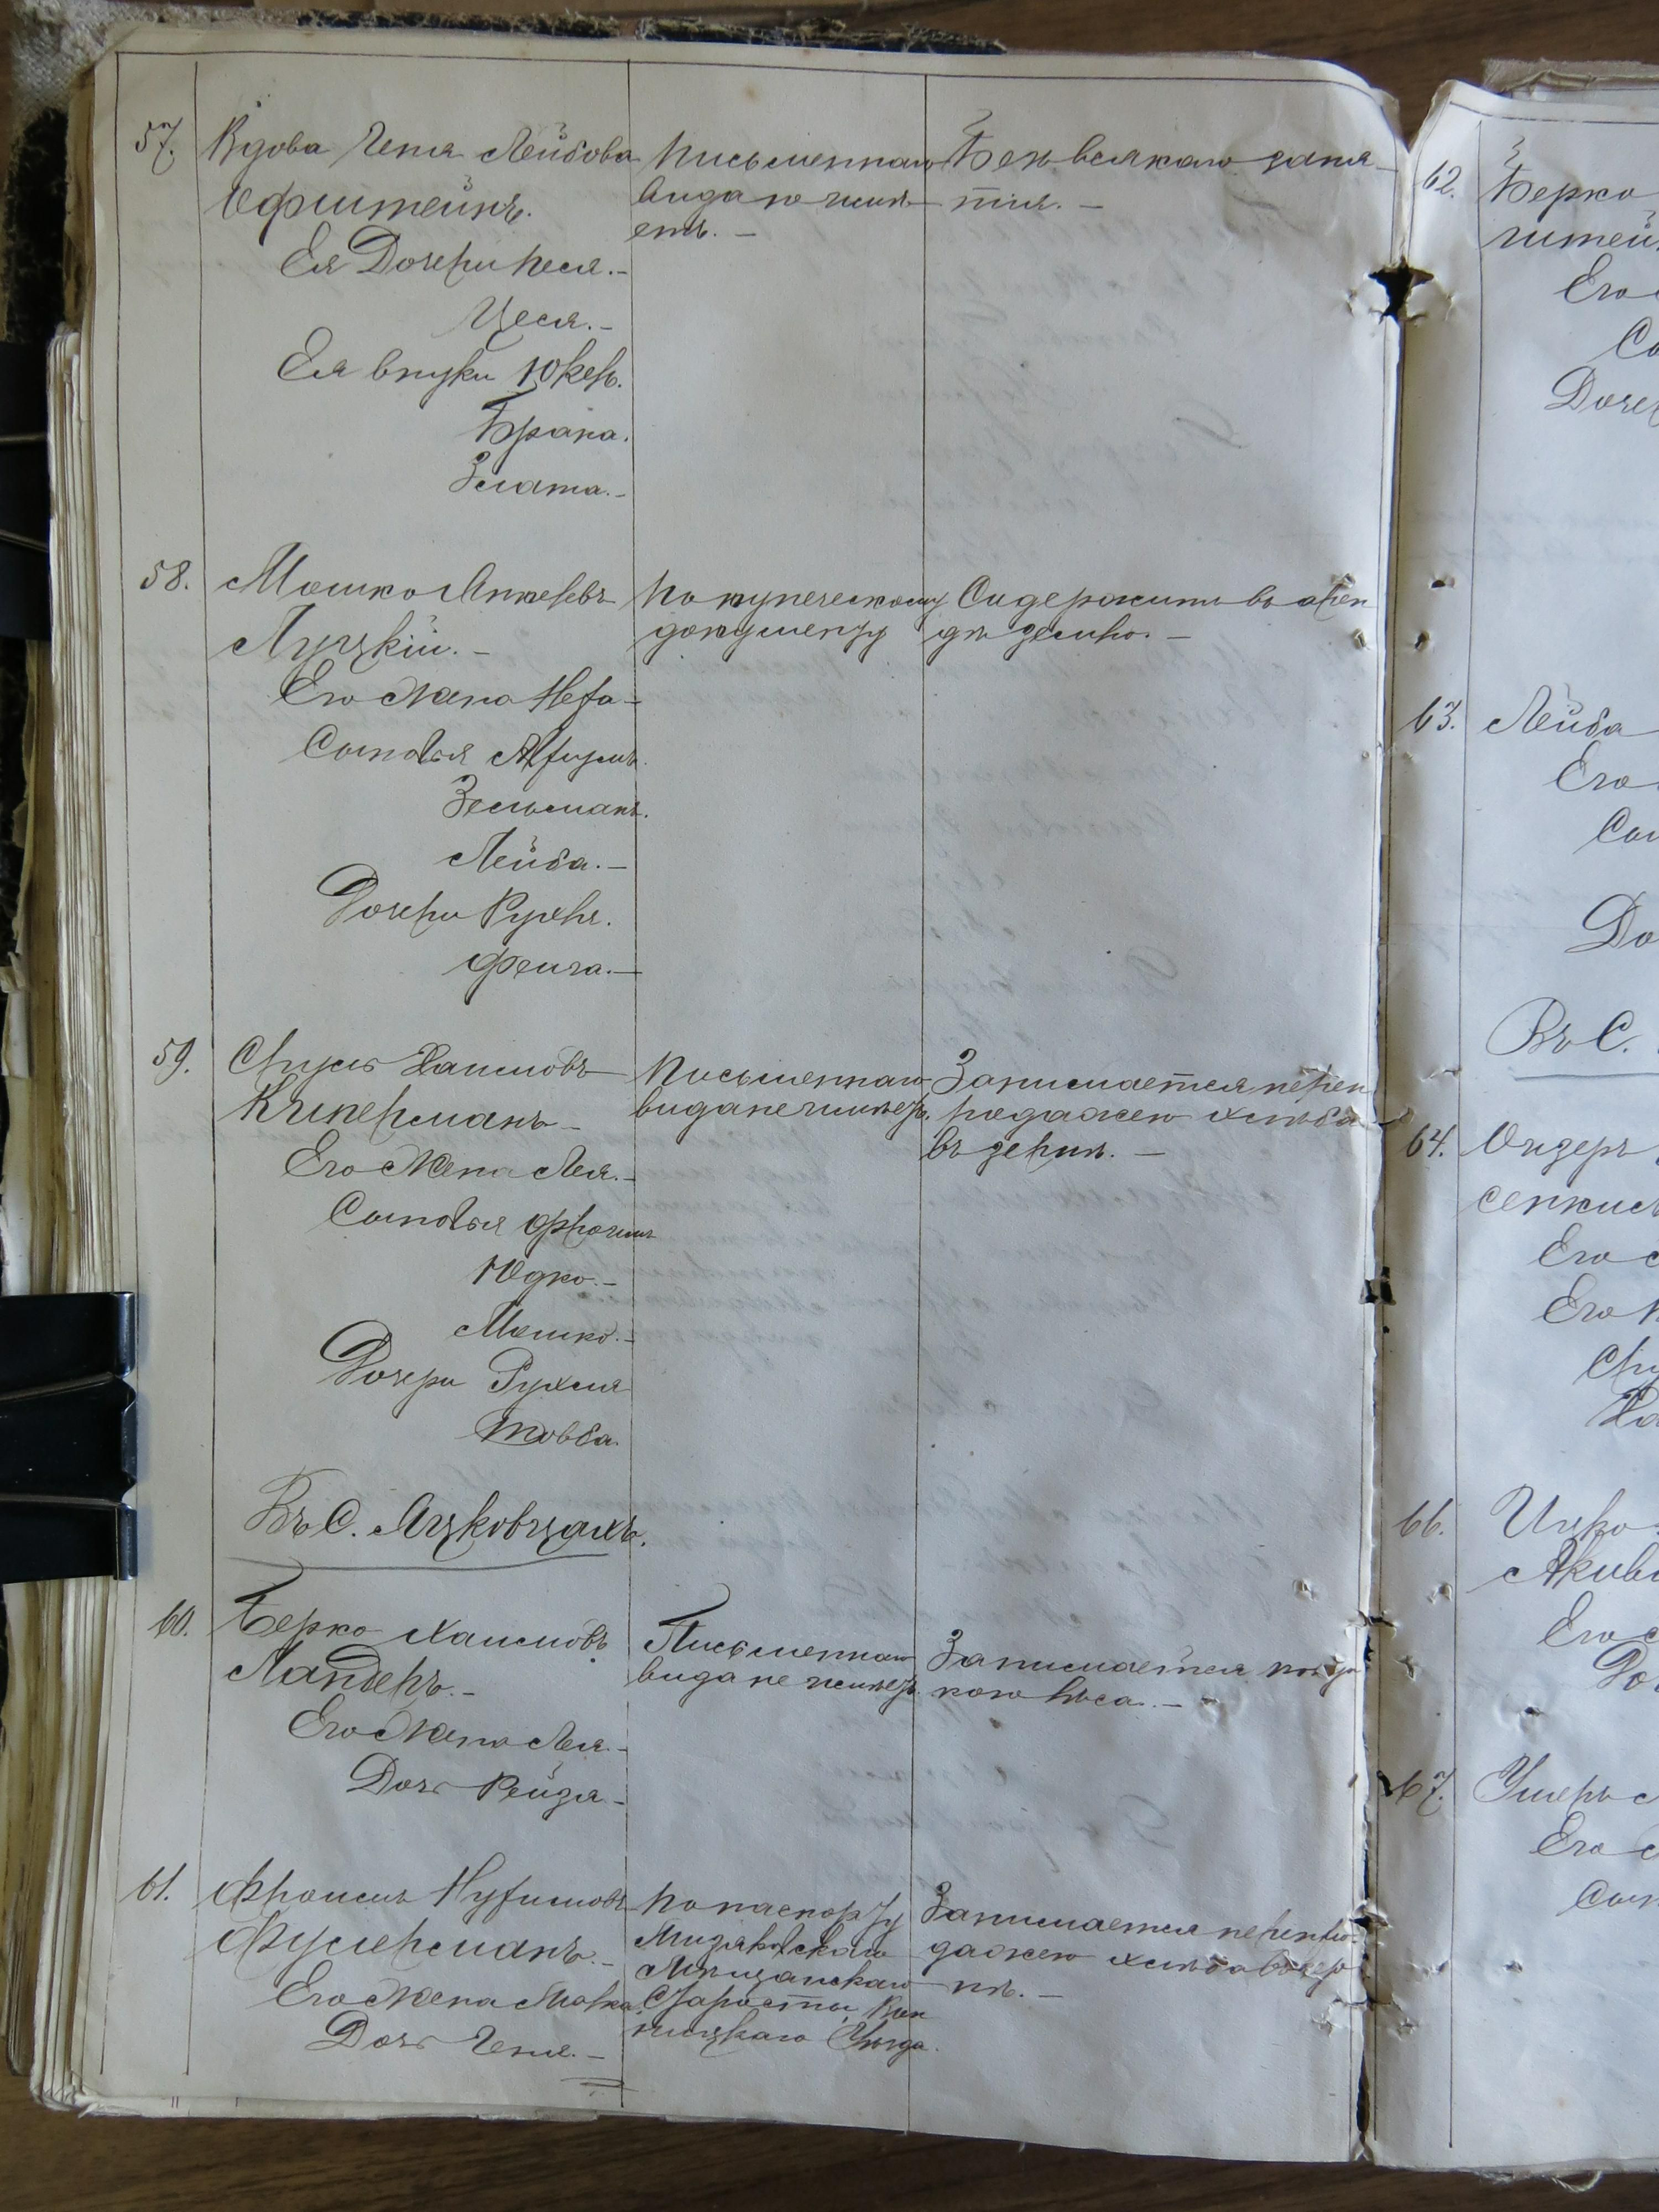 57. Вдова Геня Лейбова
Офштейнъ.
Ея Дочери Песя.-
Цеся.-
Ея внуки Юкер.
Брана.
Злата.-
Письменнаго
вида не имѣ-
етъ. -
Безъ всякаго заня-
тія. -
58. Мошко Янкелевъ
Луцкій. -
Его Жена Нета -
Сыновья
Зельманъ.
Лейба. -
Дочери Рухля.
Фейга. -
По купеческому
документу
Содержитъ въ арен
дѣ землю. -
59. Сруль Хаимовъ
Киперманъ -
Его Жена Лея. -
Сыновья Фроимъ
Юдко. -
Мошко. -
Дочери Рухля
Товба.
Письменнаго
вида не имѣетъ.
Занимается переп
родажею хлѣба
въ зернѣ. -
Въ С. Яцковцахъ.
60. Берко Хаимовъ
Ландеръ. -
Его Жена Лея. -
Дочь Рейзя -
Письменнаго
вида не имѣетъ.
Занимается
лѣса. -
61. Фроимъ Нутимовъ
Фуксманъ. -
Его Жена
Дочь Геня. -
По паспорту
Мизяковскаго
Мѣщанскаго
Старосты, Вин
ницкаго Уѣзда.
Занимается перепро-
дажею хлѣба въ зер
нѣ. -
62. Берко
штей
Его
Со
Дочер
63. Лейба
Его
Сы
До
Въ С.
64.
Его
Его
Сру
Ха
66. Ицко
Акиви
Его
До
67. Ушеръ
Его
Сын